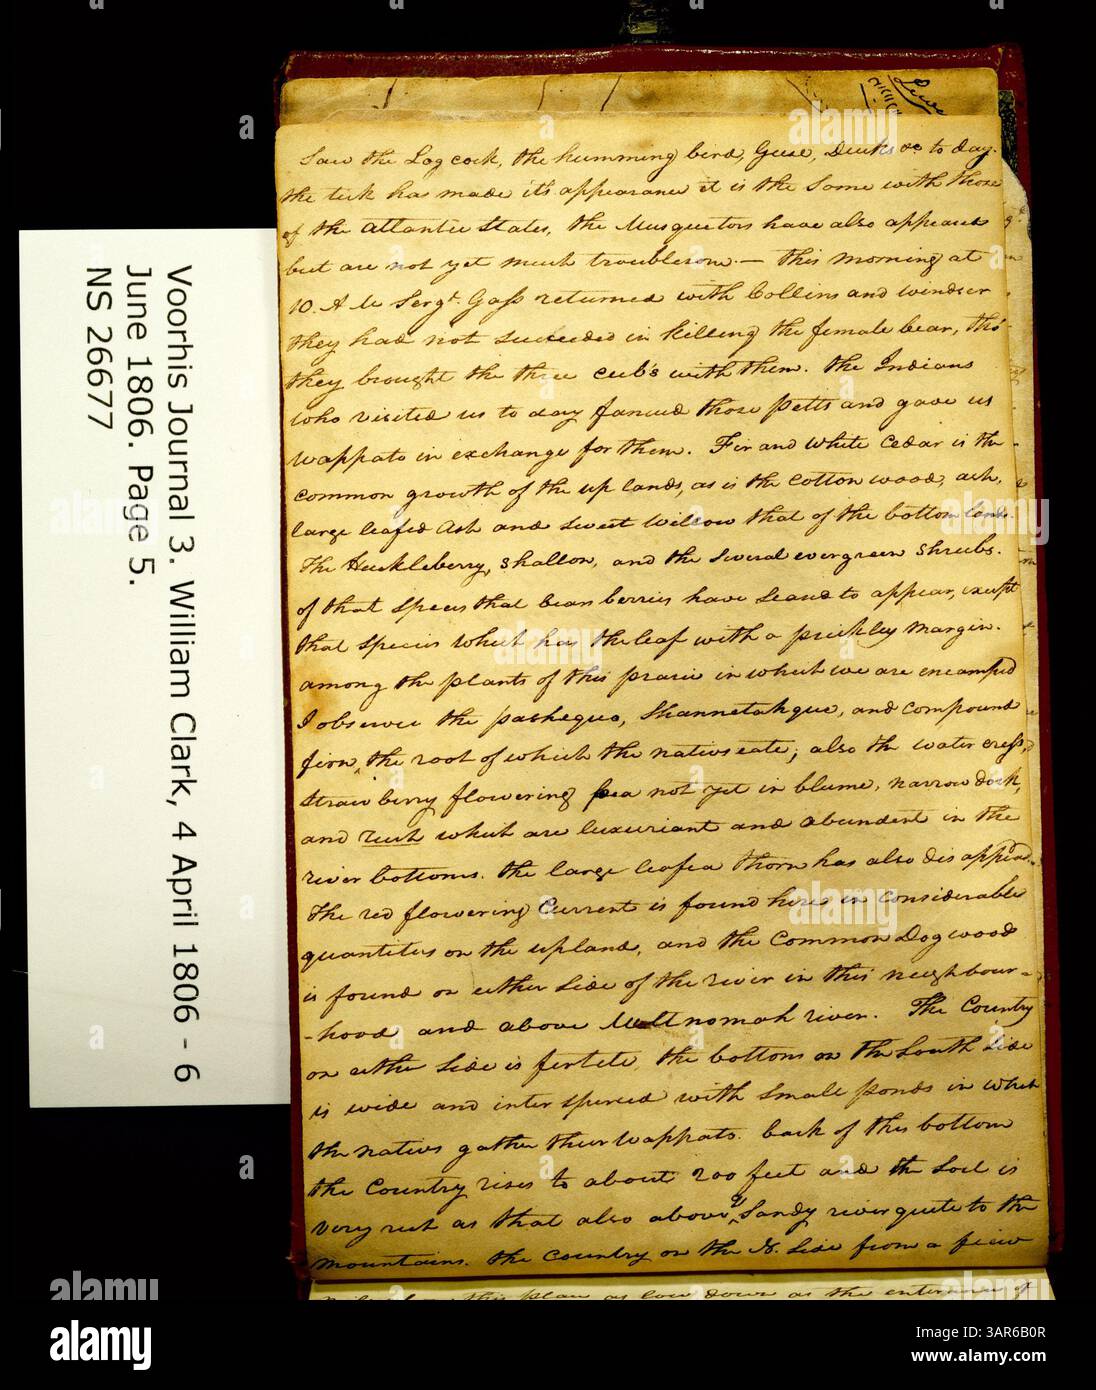 Voorhis Journal 3. William Clark, 4 April 1806 - 6
June 1806. Page 5.
NS 26677
Saw the Log cock, the humming bird, Geese, Ducks &c to day.
the tick has made it's appearance it is the Same with those
of the atlantic States. the Musquetors have also appeared
but are not yet much troublesom. — this morning at
10. A M Sergt. Gass returned with Collins and windser
they had not Succeeded in killing the female bear, tho'
they brought the three cub's with them. the Indians
who visited us to day fancied those petts and gave us
wappato in exchange for them. Fir and white Cedar is the
common growth of the up lands, as is the cotton wood, ash,
large leafed Ash and Sweet willow that of the bottom lands.
The Huckleberry, Shallon, and the Several evergreen Shrubs.
of that Speces that bears berries have Seased to appear, except
that Species which has the leaf with a prickley margin.
among the plants of this prarie in which we are encamped
I observe the pashequo, Shannetahque, and compound
firn, the root of which the natives eate; also the water cress,
Straw berry flowering pea not yet in blume, narrow dock,
and rush which are luxuriant and abundent in the
river bottoms. the large leafed thorn has also disappeard.
The red flowering Current is found here in considerable
quantities on the upland, and the Common Dog wood
is found on either Side of the river in this neighbour-
-hood and above Multnomah river. The Country
on either Side is fertile, the bottom on the South Side
is wide and inter spersed with Small ponds in which
the nativs gather their wappato. back of this bottom
the Country rises to about 200 feet and the Soil is
very rich as that also above Sandy river quite to the
mountains. the Country on the N. Side from a fiew
this plain as low down as the enterance of
alamy
3AR6B0R
www.alamy.com